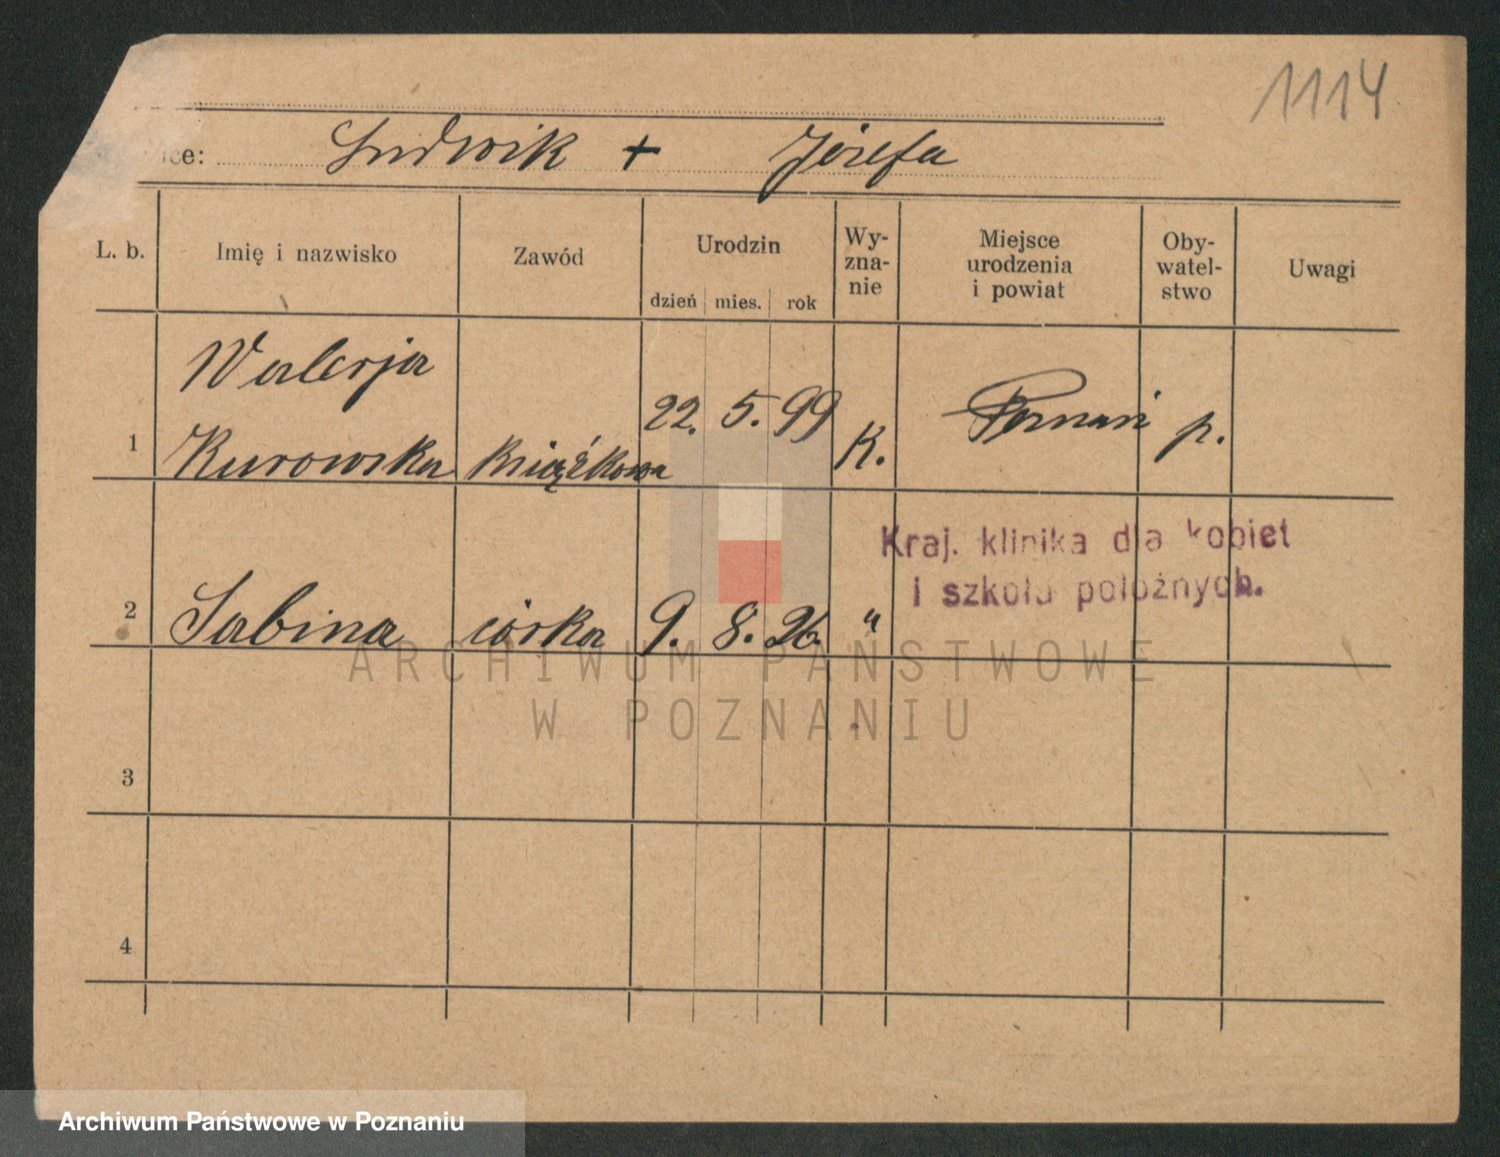 1114
ice: Ludwik + Józefa
L. b. Imię i nazwisko Zawód Urodzin dzień mies. rok Wy- zna- nie Miejsce urodzenia i powiat Oby- watel- stwo Uwagi
Walerja
1 Kurowska książkowa 22. 5. 99 K. Poznań p.
Kraj. klinika dla kobiet
i szkoła położnych.
2 Sabina córka 9. 8. 26. "
ARCHIWUM PAŃSTWOWE
W POZNANIU
3
4
Archiwum Państwowe w Poznaniu